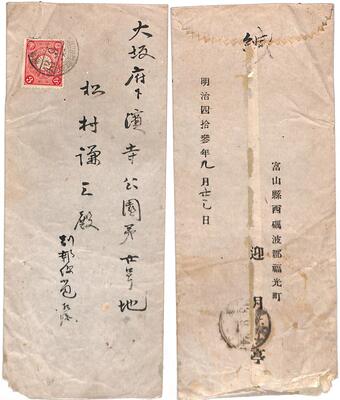 大坂府下濱寺公園第廿号地
松村謙三殿
緘
明治四拾參年九月廿二日
富山縣西礪波郡福光町
迎月亭